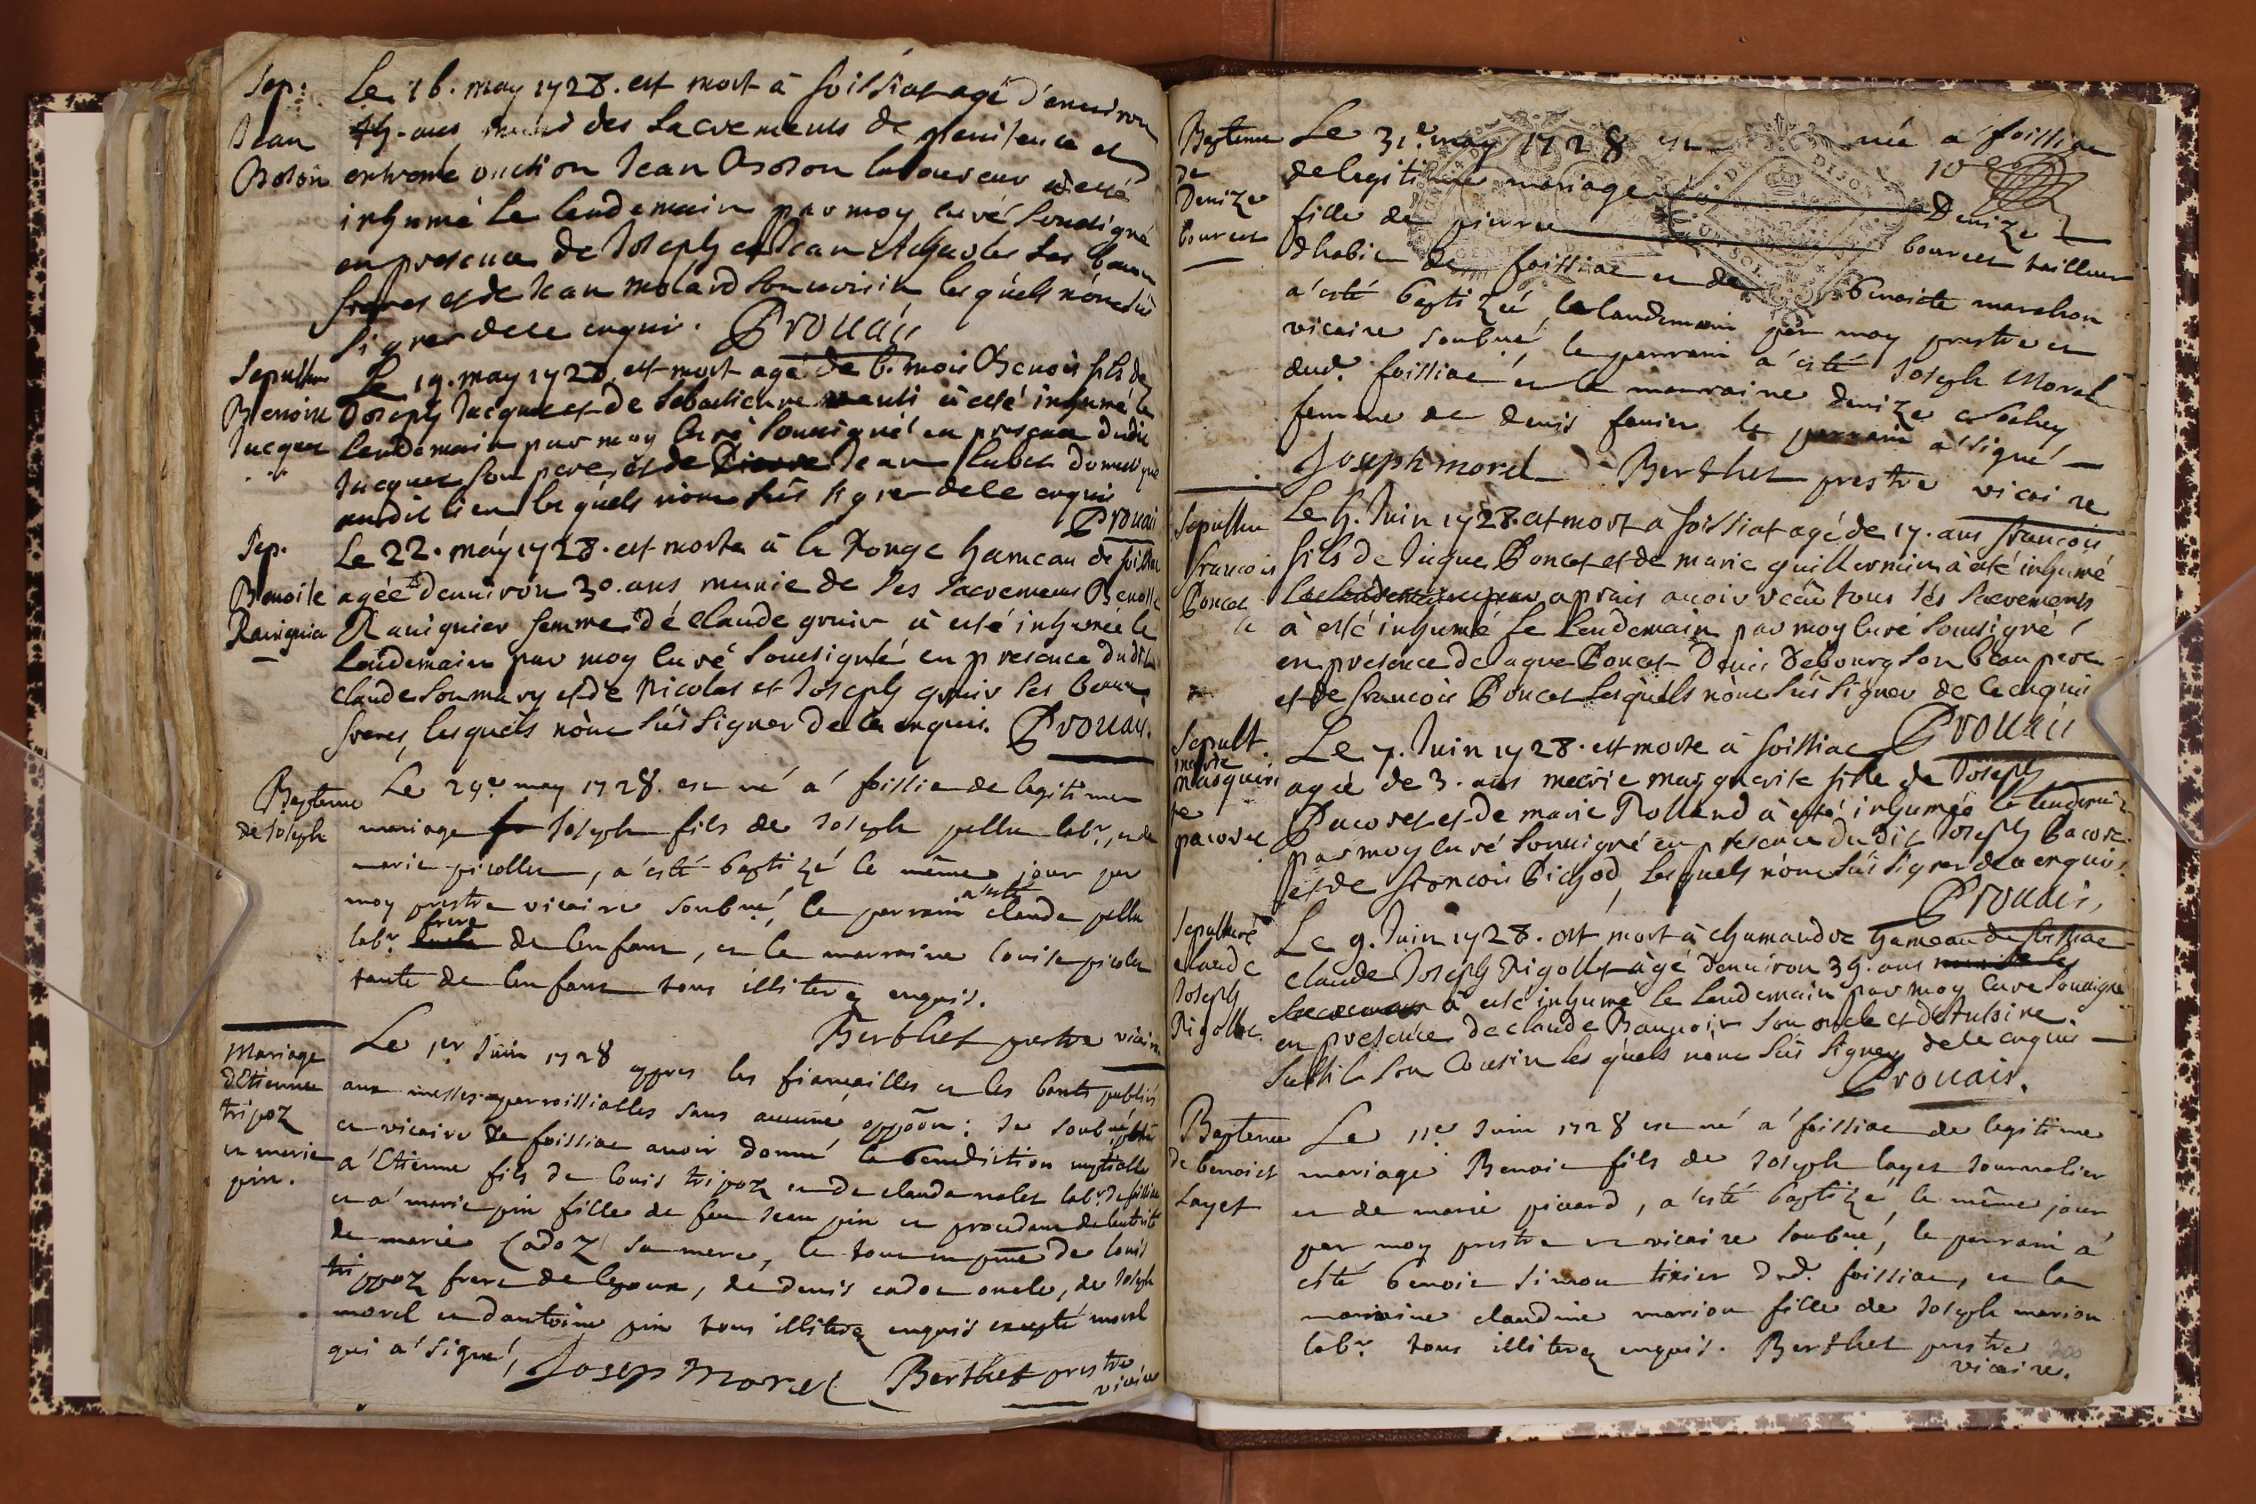 Sep:
Jean
Le 16. may 1728. est mort à foissiat agé d'environ
ans des Sacrements de penitence et
extreme onction Jean laboureur a esté
inhumé le lendemain par moy curé soussigné
en presence de Joseph et Jean ses beau
freres et de Jean molard son voisin lesquels n'ont sù
signer de ce enquis. Prouais
Sepulture
Benoist
Jacquet
Le 19. may 1728. est mort agé de 6. mois Benois fils de
Joseph Jacquet et de Sebastienne à esté inhumé le
lendemain par moy curé soussigné en presence dudit
Jacquet son pere, et de Pierre Jean domestique
audit lieu lesquels n'ont sùs signer de ce enquis
Prouais
Sep.
Benoite
Raviguier
Le 22. may 1728. est morte à la Ronge hameau de foissiat
agée denviron 30. ans munie de ses sacremens Benoite
Raviguier femme de claude gruir à esté inhumée le
lendemain par moy curé soussigné en presence dudit
claude son mary et de Nicolas et Joseph gruir ses beaux
freres, lesquels n'ont sùs signer de ce enquis. Prouais.
Bapteme
de Joseph
Le 29e may 1728. est né a foissia de legitime
mariage Joseph fils de Joseph pellu labr, et de
marie picollet, a esté baptizé le même jour par
moy prestre vicaire soubné, le parrain a esté claude pellu
labr frere de lenfant, et la marraine louise picollet
tante de lenfant tous illiterez enquis.
Berthet prestre vicaire
Mariage
d'Etienne
tripoz
et marie
pin.
Le 1er Juin 1728 appres les fiançailles et les bants publiés
aux messes parroissialles sans aucune oppoõn: Je soubné prêtre
et vicaire de foissiac avoir donné la benediction nuptialle
a Etienne fils de louis tripoz et de clauda nalet labr de foissiac
et a marie pin fille de feu Jean pin et procedant de lautorité
de marie Cadoz sa mere, le tout en pñce de louis
trippoz frere de lepoux, de denis cadoz oncle, de Joseph
morel et dantoine pin tous illiterez enquis excepté morel
qui a signé, Josep Morel Berthet prestre
vicaire
Bapteme
de
Denize
bourcet
Le 31e may 1728 est née a foissiac
10e
de legitime mariage Denize
fille de pierre bourcet tailleur
dhabit de foissiac et de benoite marchon
a esté baptizée le landemain par moy prestre et
vicaire soubné, le parrain a esté Joseph Morel
dud. foissiac et la marraine denize
femme de denis le parrain a signé
Joseph morel Berthet prestre vicaire
Sepulture
francois
Poncet
Le 4. Juin 1728. est mort à foissiat agé de 17. ans francois
fils de Poncet et de marie guillermin à esté inhumé
le lendemain par aprais avoir recû tous ses sacrements
à esté inhumé le lendemain par moy curé soussigné
en presence de Poncet Denis debourg son beau pere
et de francois Poncet lesquels n'ont sùs signer de ce enquis
Prouais
Sepult.
marie
marguerite
pacoret
Le 7. Juin 1728. est morte à foissiac
agée de 3. ans marie marguerite fille de Joseph
Pacoret et de marie Rolland à esté inhumée le lendemain
par moy curé soussigné en presence dudit Joseph Pacoret
et de francois Pichod, lesquels n'ont sùs signer de ce enquis.
Prouais,
Sepulture
claude
Joseph
Rigollet
Le 9. Juin 1728. est mort à chamandre hameau de foissiac
claude Joseph Rigollet agé denviron 39. ans
à esté inhumé le lendemain par moy curé soussigné
en presence de claude son oncle et d'Antoine
son Cousin lesquels n'ont sùs signer de ce enquis
Prouais.
Bapteme
de benoist
Layet
Le 11e Juin 1728 est né a foissiac de legitime
mariage Benoit fils de Joseph layet Journalier
et de marie picard, a esté baptizé, le même jour
par moy prestre et vicaire soubné, le parrain a
esté benoit simon tixier dud. foissiac, et la
marraine claudine marion fille de Joseph marion
labr tous illiterez enquis. Berthet prestre
vicaire.